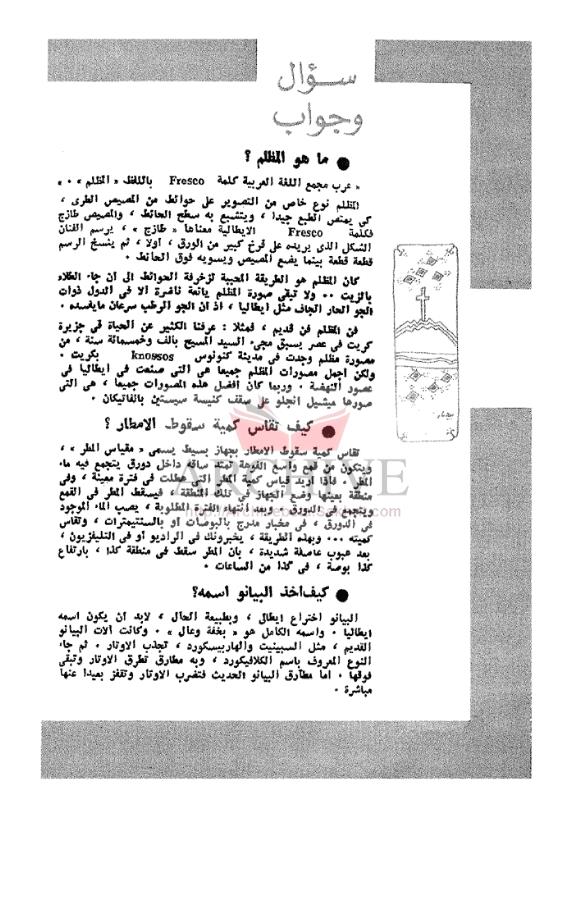 سؤال
وجواب
● ما هو المظلم ؟
« عرب مجمع اللغة العربية كلمة Fresco باللفظ « المظلم » ٠ »
المظلم نوع خاص من التصوير على حوائط من المصيص الطرى ،
كى يمتص الطبع جيدا ، ويتشبع به سطح الحائط ، والمصيص طازج
فكلمة Fresco الايطالية معناها « طازج » ، يرسم الفنان
الشكل الذى يريده على فرخ كبير من الورق ، اولا ، ثم ينسخ الرسم
قطعة قطعة بينما يضع المصيص ويسويه فوق الحائط ٠
كان المظلم هو الطريقة المحببة لزخرفة الحوائط الى ان جاء الطلاء
بالزيت ٠٠ ولا تبقى صورة المظلم يانعة ناضرة الا فى الدول ذوات
الجو الحار الجاف مثل ايطاليا ، اذ ان الجو الرطب سرعان مايفسده ٠
فن المظلم فن قديم ، فمثلا : عرفنا الكثير عن الحياة فى جزيرة
كريت فى عصر يسبق مجىء السيد المسيح بالف وخمسمائة سنة ، من
مصورة مظلم وجدت فى مدينة كنوسوس knossos بكريت ٠
ولكن اجمل مصورات المظلم جميعا هى التى صنعت فى ايطاليا فى
عصور النهضة ٠ وربما كان افضل هذه المصورات جميعا ، هى التى
صورها ميشيل انجلو على سقف كنيسة سيستين بالفاتيكان ٠
● كيف تقاس كمية سقوط الامطار ؟
تقاس كمية سقوط الامطار بجهاز بسيط يسمى « مقياس المطر » ،
ويتكون من قمع واسع الفوهة تمتد ساقه داخل دورق يتجمع فيه ماء
المطر ٠ فاذا اريد قياس كمية المطر التى هطلت فى فترة معينة ، وفى
منطقة بعينها وضع الجهاز فى تلك المنطقة ، فيسقط المطر فى القمع
ويتجمع فى الدورق ٠ وبعد انتهاء الفترة المطلوبة ، يصب الماء الموجود
فى الدورق ، فى مخبار مدرج بالبوصات او بالسنتيمترات ، وتقاس
كميته ٠٠٠ وبهذه الطريقة ، يخبرونك فى الراديو او فى التليفزيون ،
بعد هبوب عاصفة شديدة ، بان المطر سقط فى منطقة كذا ، بارتفاع
كذا بوصة ، فى كذا من الساعات ٠
● كيف اخذ البيانو اسمه؟
البيانو اختراع ايطالى ، وبطبيعة الحال ، لابد ان يكون اسمه
ايطاليا ٠ واسمه الكامل هو « بخفة وعال » ٠ وكانت آلات البيانو
القديم ، مثل السبينيت والهاربيسكورد ، تجذب الاوتار ٠ ثم جاء
النوع المعروف باسم الكلافيكورد ، وبه مطارق تطرق الاوتار وتبقى
فوقها ٠ اما مطارق البيانو الحديث فتضرب الاوتار وتقفز بعيدا عنها
مباشرة ٠
ARCHIVE